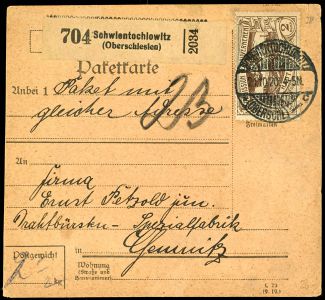 704 Schwientochlowitz
(Oberschlesien)
2034
Paketkarte
Anbei 1 Paket mit
gleicher Adresse
2/3
Freimarken
An
Firma
Ernst Petzold jun.
Drahtbürsten-Spezialfabrik
in Chemnitz
Postgewicht
Wohnung
(Straße und
Hausnummer)